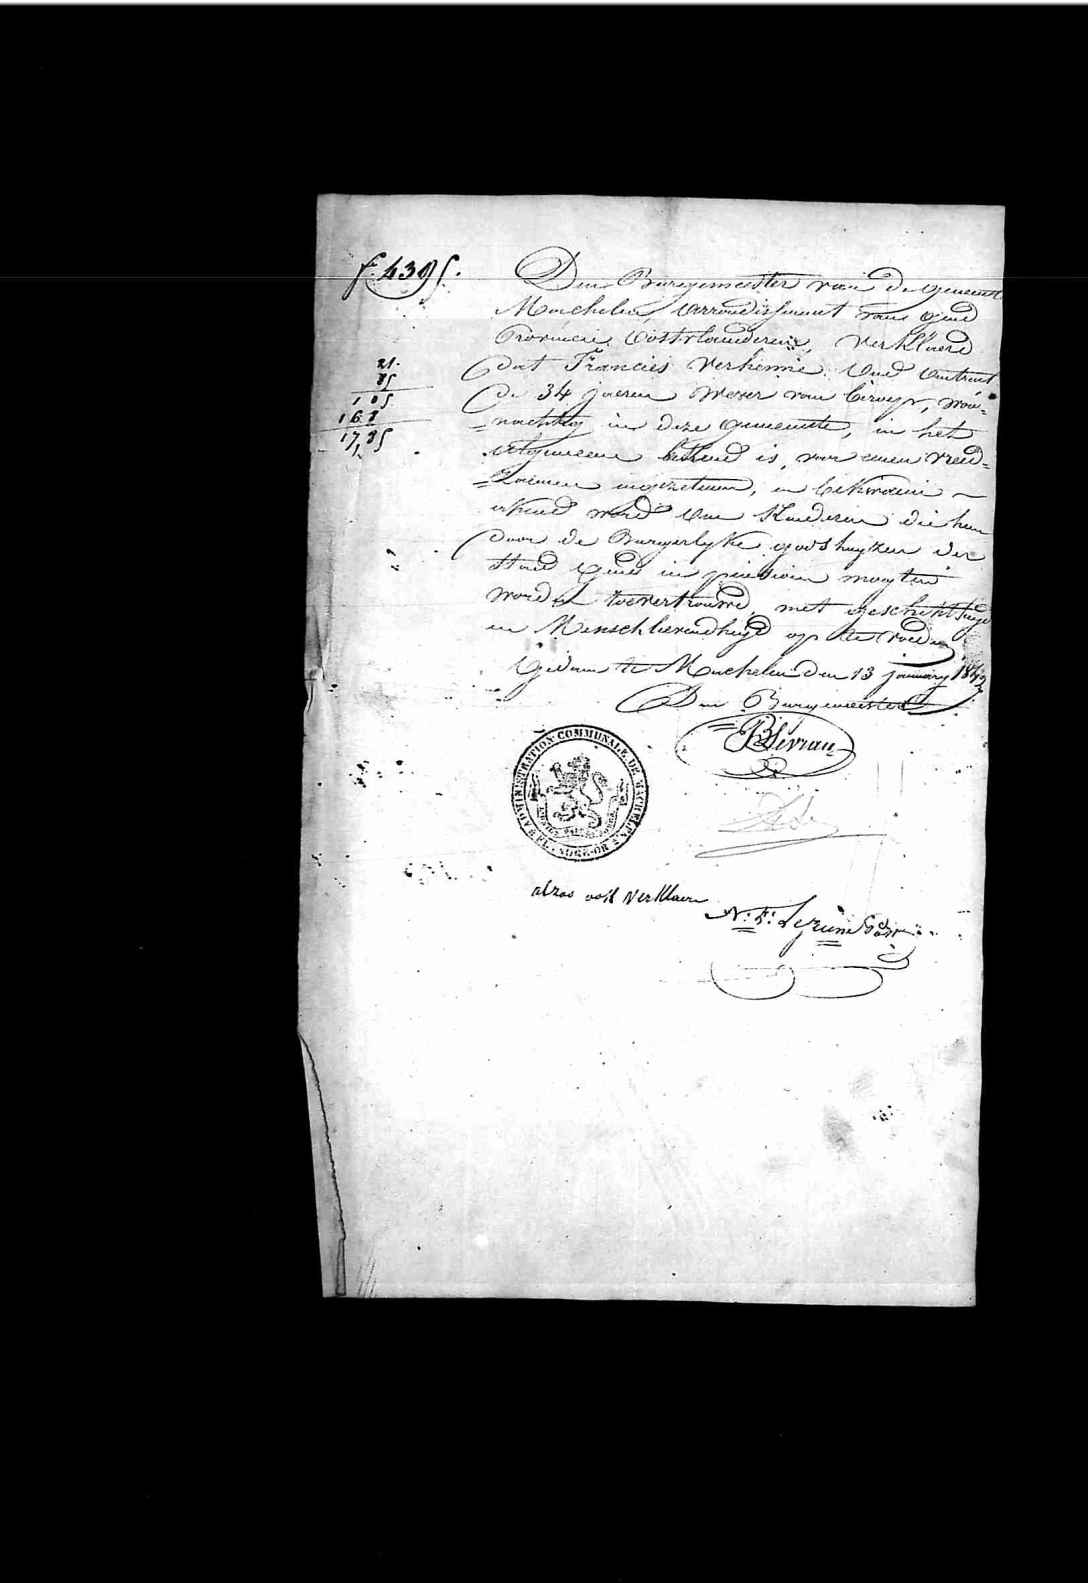 f. 4395.
Den Burgemeester van de gemeente
Machelen, Arrondissement van Gend
Provincie Oostvlaenderen, verklaerd
dat Francies Verhenne oud ontrent
de 34 jaeren Wever van beroep, wóo-
=nachtig in deze gemeente, in het
algemeene bekend is, voor eenen vreed-
=zaemen ingezetenen, en bekwaem
erkend word om Kinderen die hem
door de Burgerlyke godshuyzen der
Stad Gend in pensioen mogten
worden toevertrouwd, met geschikthuyd
en Menschlievendhuyd op te voeden
Gedaen te Machelen den 13 january 1842
Den Burgemeester
21.
85
105
168
17,85
ADMINISTRATION COMMUNALE DE MACHELEN
alzoo ook verklaere